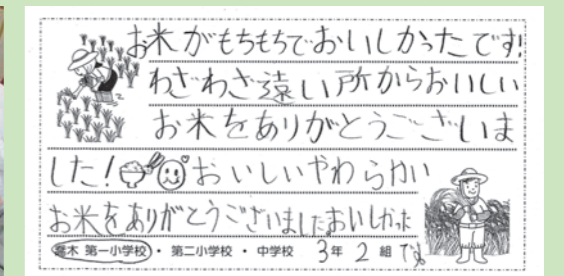 お米がもちもちでおいしかったです!
わざわざ遠い所からおいしい
お米をありがとうございま
した!おいしいやわらかい
お米をありがとうございましたおいしかった
喬木 第一小学校 ・ 第二小学校 ・ 中学校 3年 2 組 です